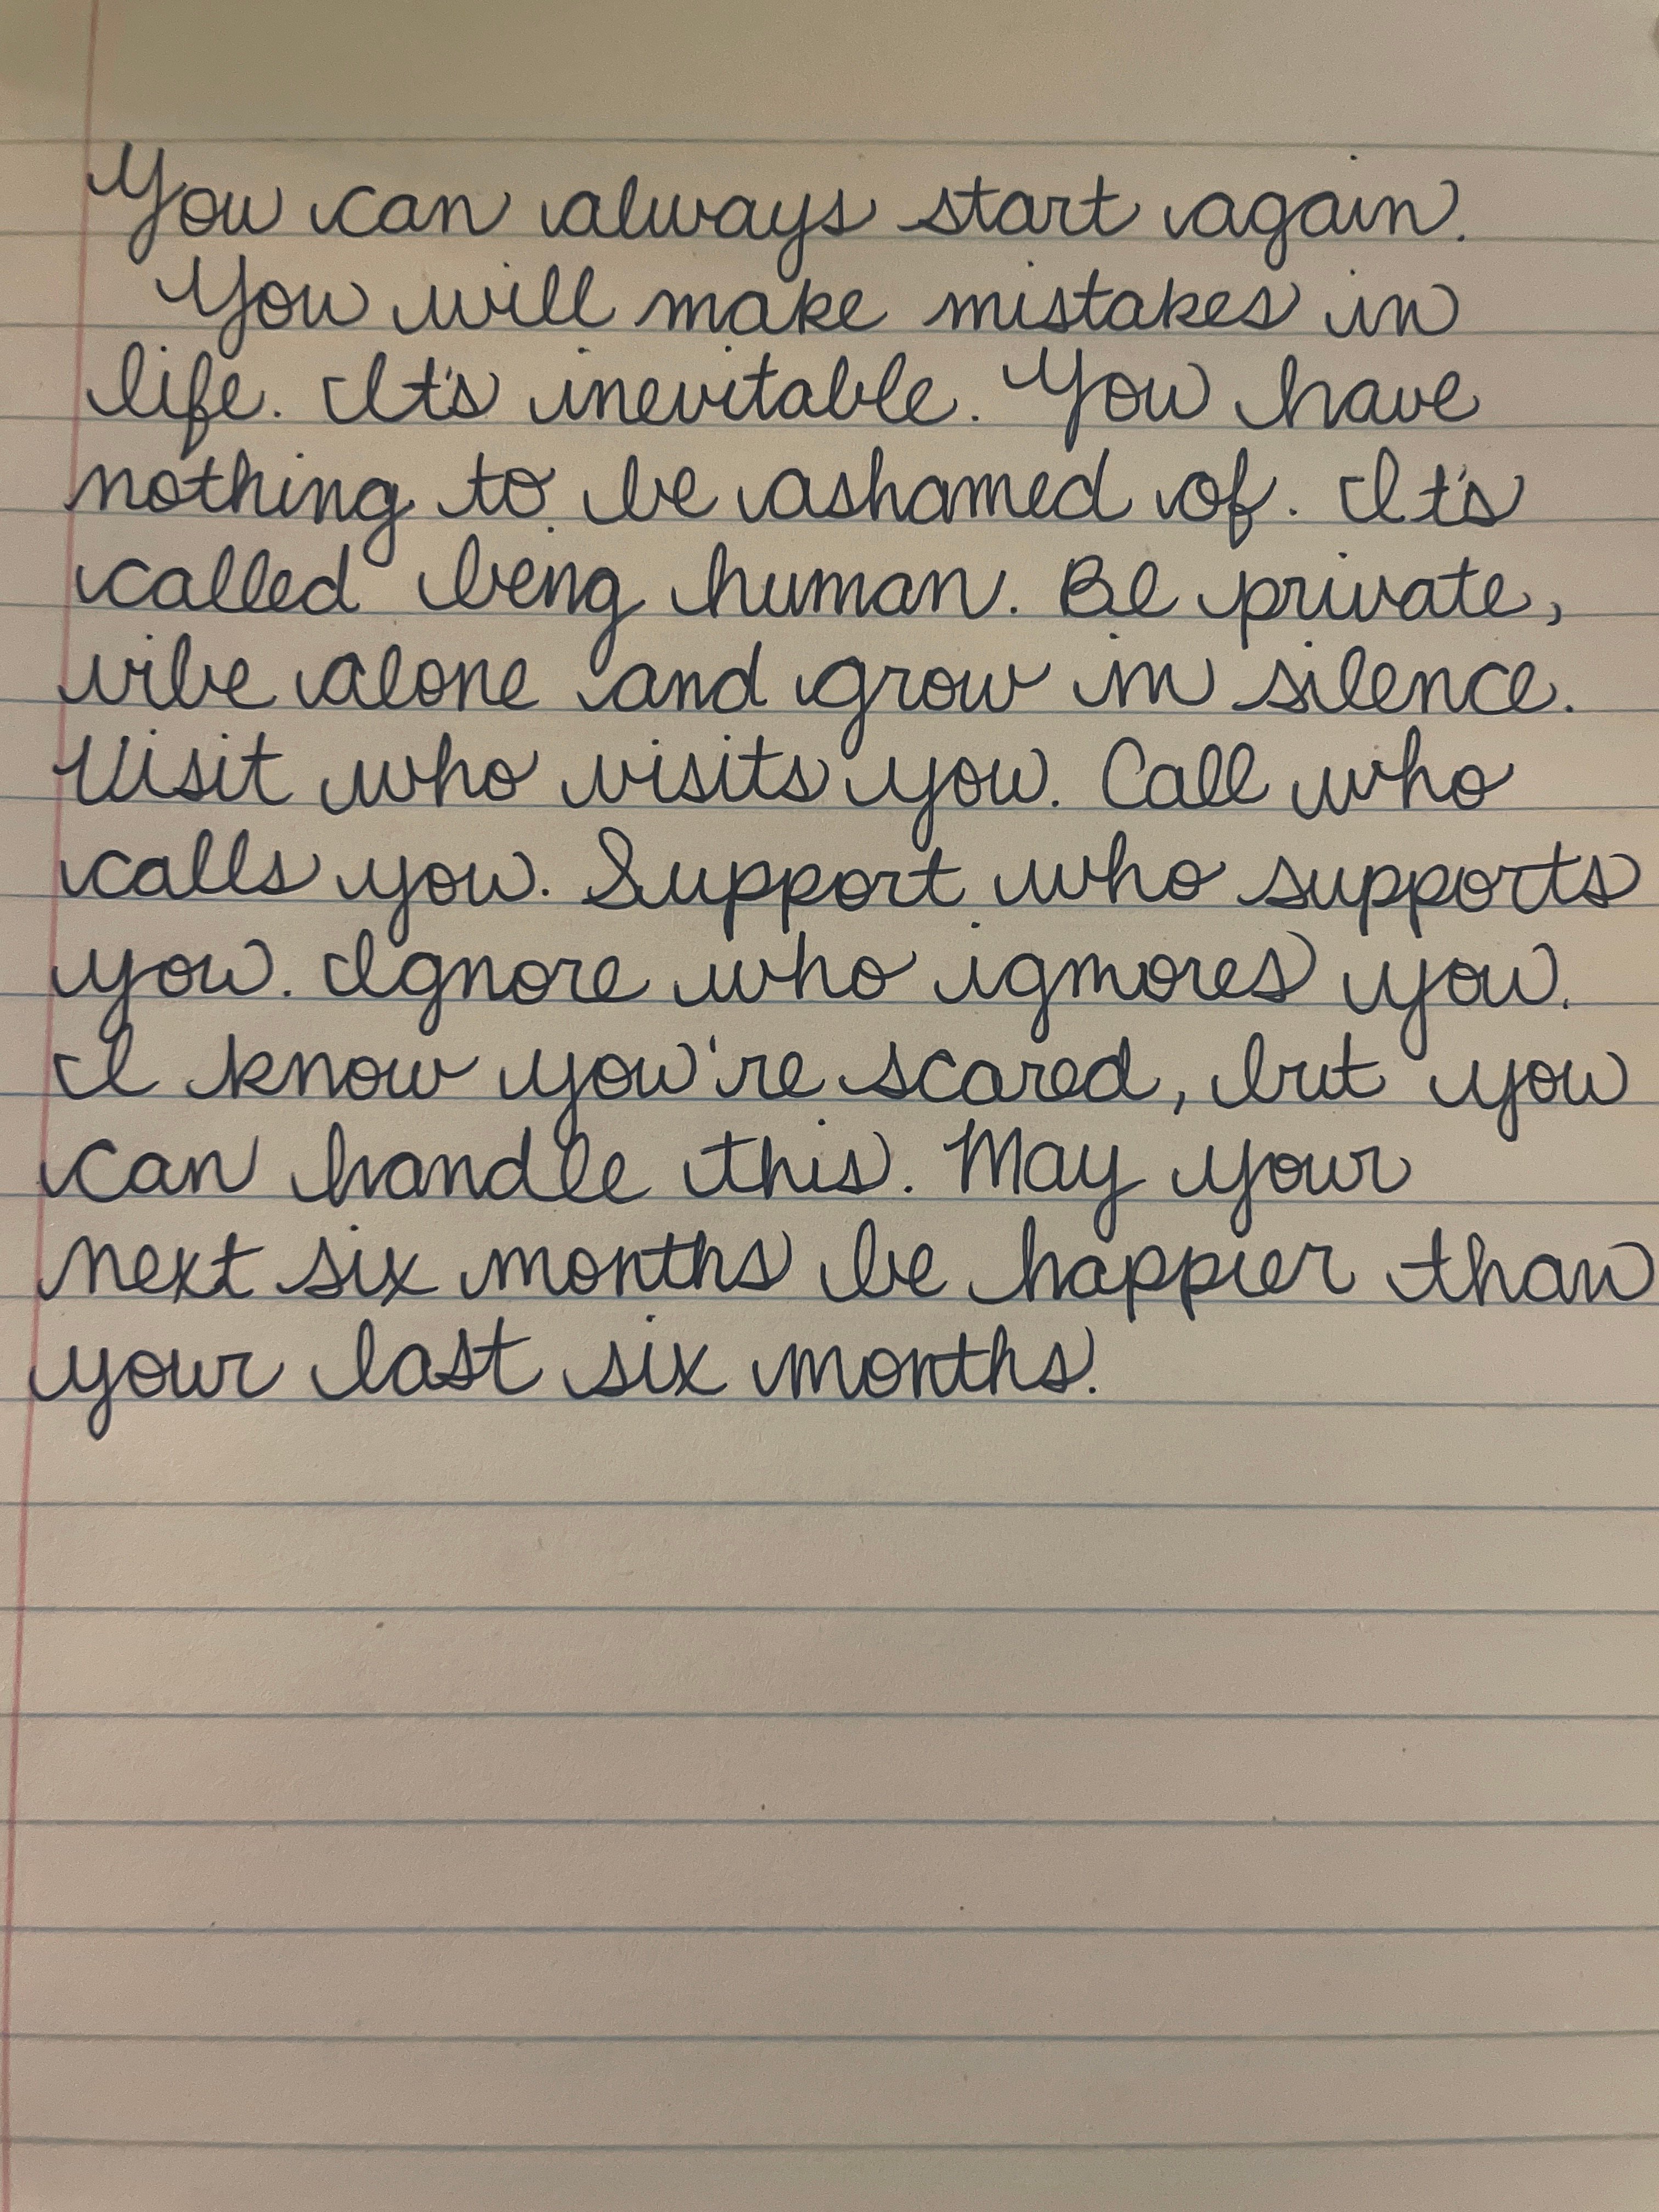 You can always start again.
You will make mistakes in
life. It's inevitable. You have
nothing to be ashamed of. It's
called being human. Be private,
vibe alone and grow in silence.
Visit who visits you. Call who
calls you. Support who supports
you. Ignore who ignores you.
I know you're scared, but you
can handle this. May your
next six months be happier than
your last six months.